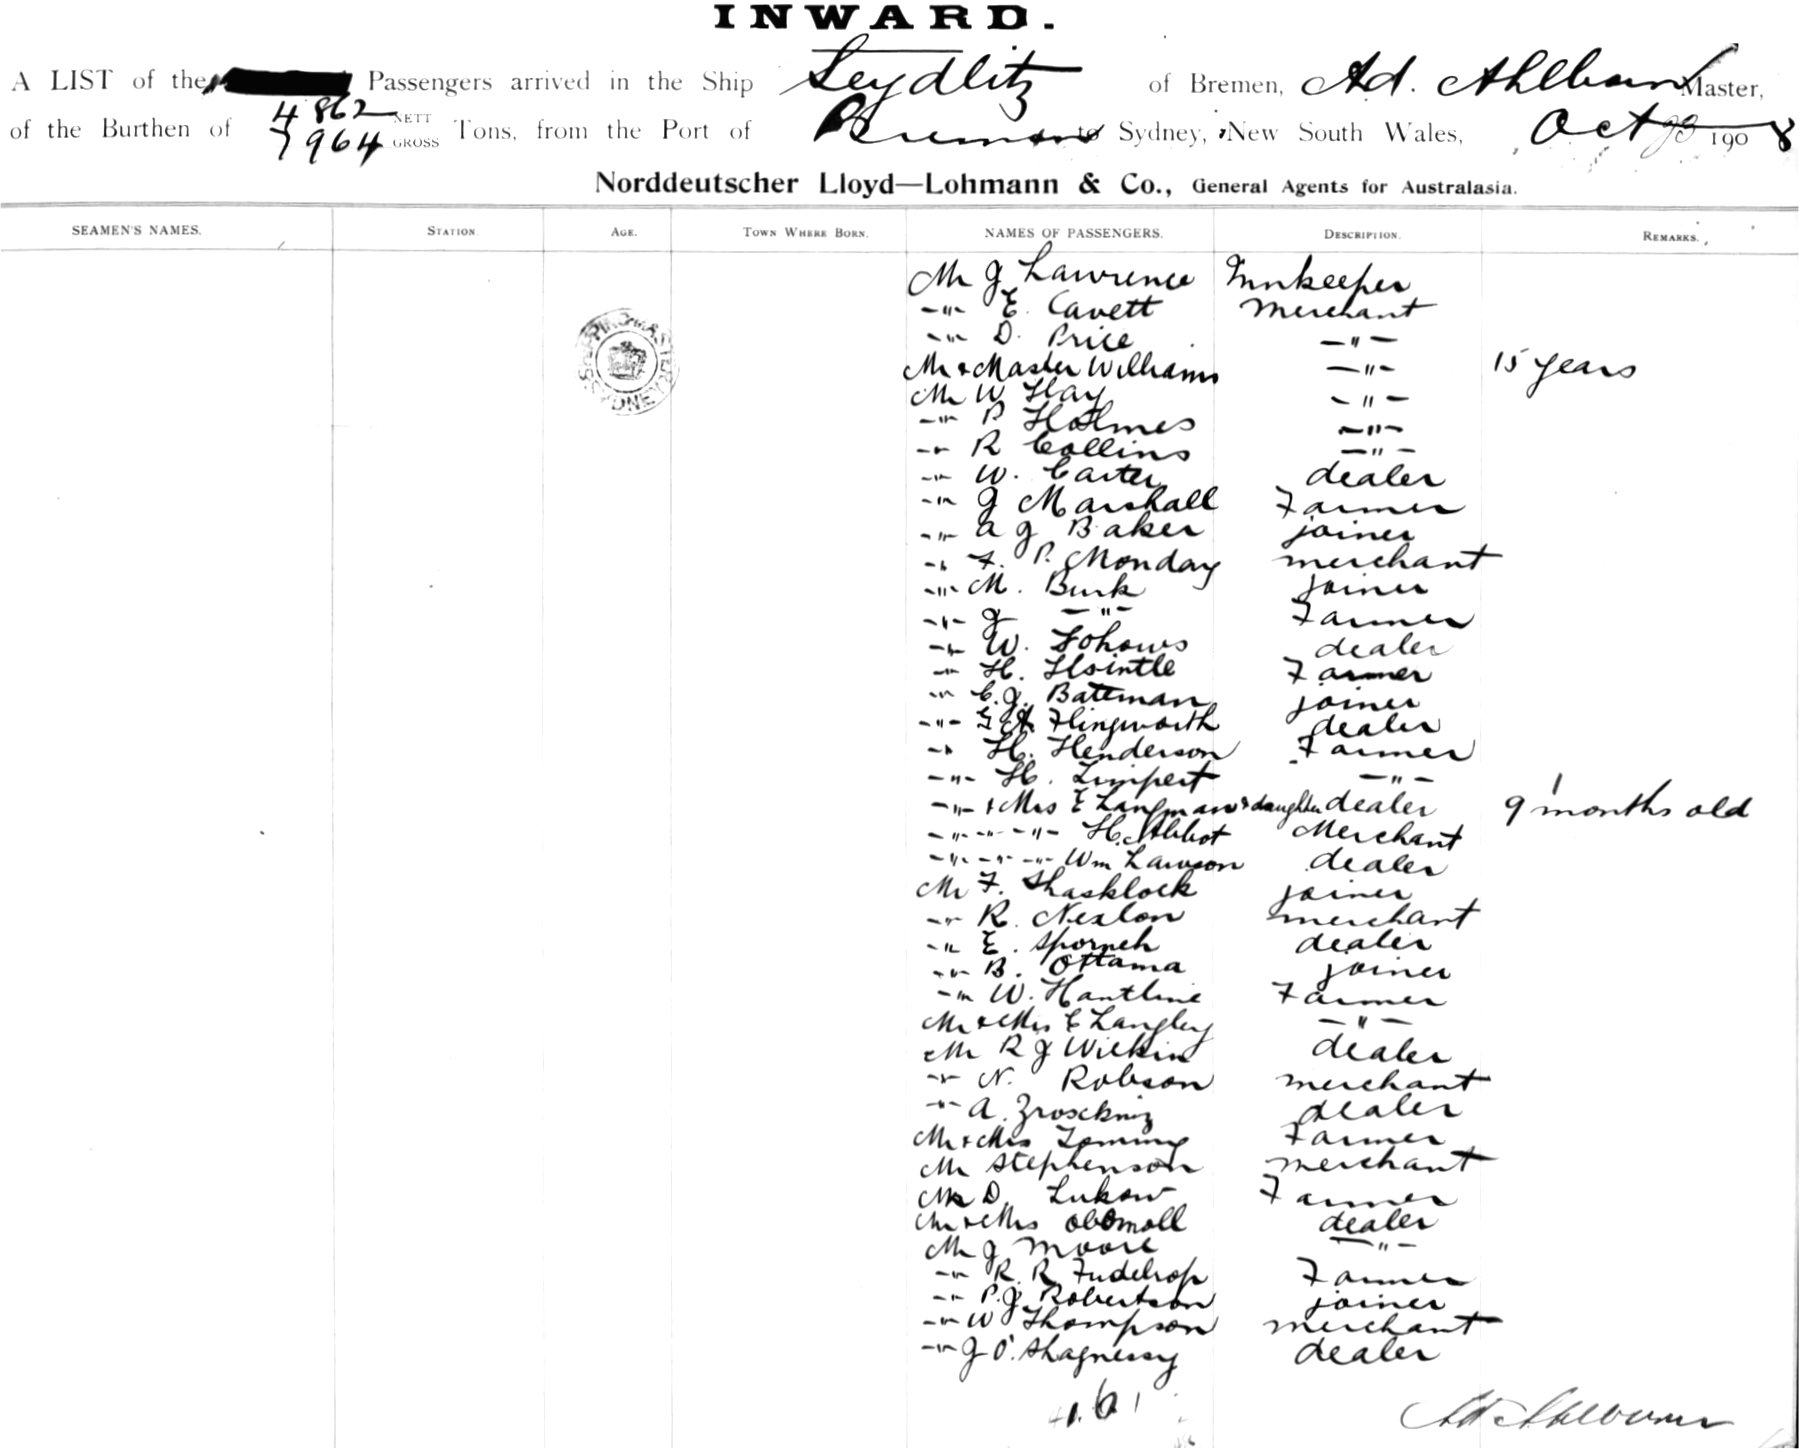 INWARD.
A LIST of the Passengers arrived in the Ship Seydlitz of Bremen, Ad. Ahlborn Master,
of the Burthen of 4862 NETT 7964 GROSS Tons, from the Port of Bremen to Sydney, New South Wales, Oct 23 1908
Norddeutscher Lloyd—Lohmann & Co., General Agents for Australasia.
SEAMEN'S NAMES. STATION. AGE. TOWN WHERE BORN. NAMES OF PASSENGERS. DESCRIPTION. REMARKS.
Mr J Lawrence Innkeeper
-"- E. Cavett Merchant
-"- D. Price -"-
Mr & Master Williams -"- 15 years
Mr W Hay -"-
-"- P Holmes -"-
-"- R Collins -"-
-"- W. Carter dealer
-"- J Marshall Farmer
-"- A J Baker joiner
-"- F. P. Monday merchant
-"- M. Burk joiner
-"- J -"- Farmer
-"- W. dealer
-"- H. Farmer
-"- C. J. Bateman joiner
-"- dealer
-"- H. Henderson Farmer
-"- H. Limpert -"-
-"- & Mrs E Langman & daughter dealer 9 months old
-"- -"- -"- H. Abbot Merchant
-"- -"- -"- Wm Lawson dealer
Mr F. joiner
-"- R. merchant
-"- E. dealer
-"- B. Ottama joiner
-"- W. Hantline Farmer
Mr & Mrs C Langley -"-
Mr R J Wilkin dealer
-"- N. Robson merchant
-"- A. dealer
Mr & Mrs Farmer
Mr Stephenson merchant
Mr D. Lukow Farmer
Mr & Mrs dealer
Mr J Moore -"-
-"- R. R. Farmer
-"- P. J. Robertson joiner
-"- W Thompson merchant
-"- J O'Shagnessy dealer
Ad Ahlborn